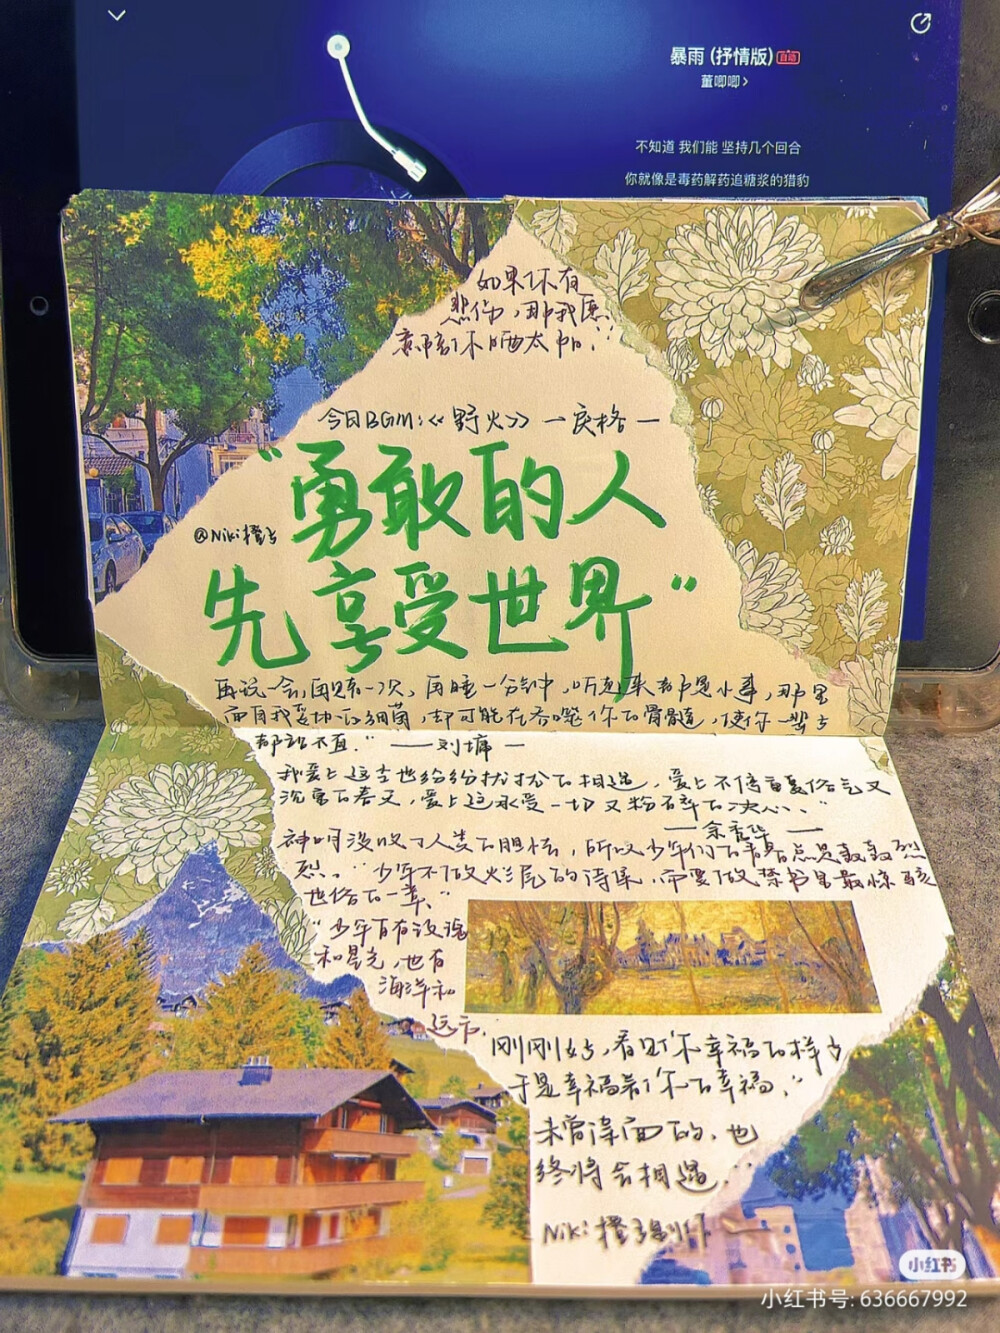 暴雨 (抒情版)
董唧唧 >
不知道 我们能 坚持几个回合
你就像是毒药解药追糖浆的猎豹
如果你有
悲伤，那我愿
意陪你晒太阳."
今日BGM:《野火》—庾格—
"勇敢的人
@Niki橙子
先享受世界"
再说一会，再赌一次，再睡一分钟，听起来都是小事，那里
面自我妥协的细菌，却可能在吞噬你的骨髓，使你一辈子
都站不直."——刘墉—
我爱上这去世纷纷扰扰的相遇，爱上不停重复俗气又
沉寂的春天，爱上这承受一切又粉碎的决心."
—余秀华—
神明没收了人类的胆怯，所以少年们的青春总是轰轰烈
烈。"少年不做炒尾的诗集，而要做禁书里最惊骇
世俗的一章."
"少年自有浪漫
和星光，也有
海洋和
远方.
刚刚好，看见你幸福的样子
于是幸福着你的幸福."
未曾谋面的，也
终将会相遇."
Niki橙子
小红书
小红书号: 636667992